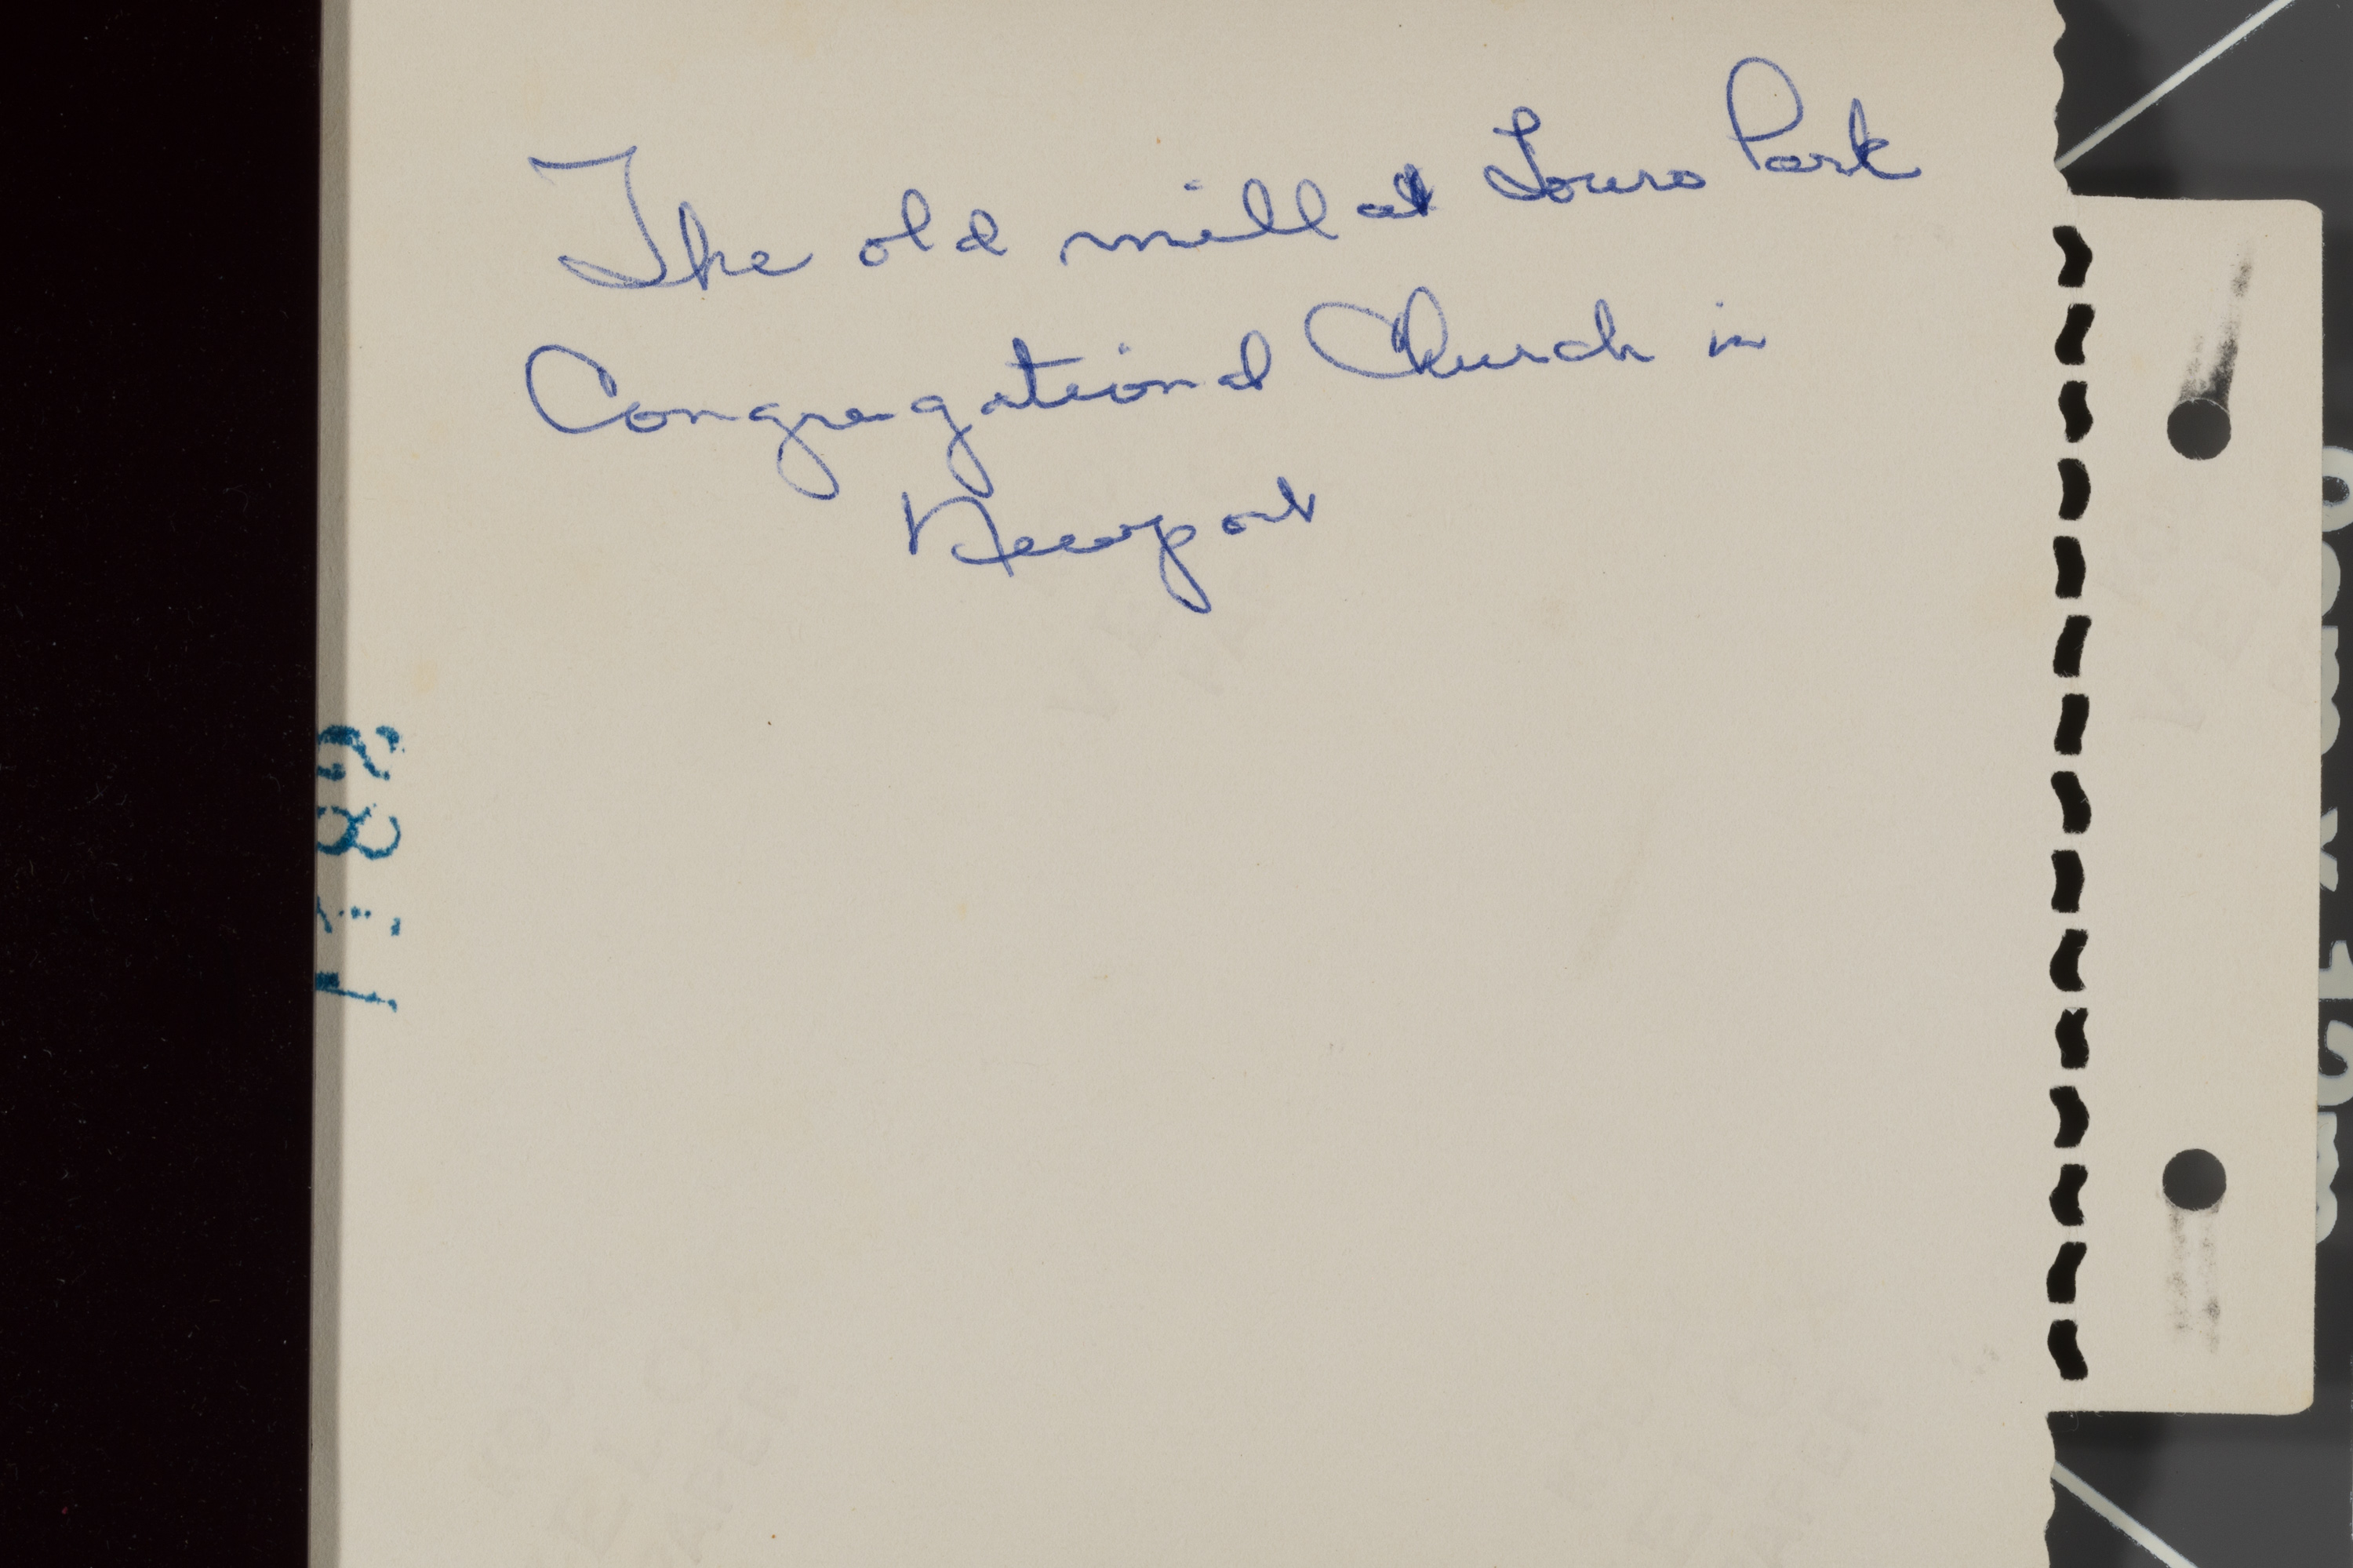 The old mill at Touro Park
Congregational Church in
Newport